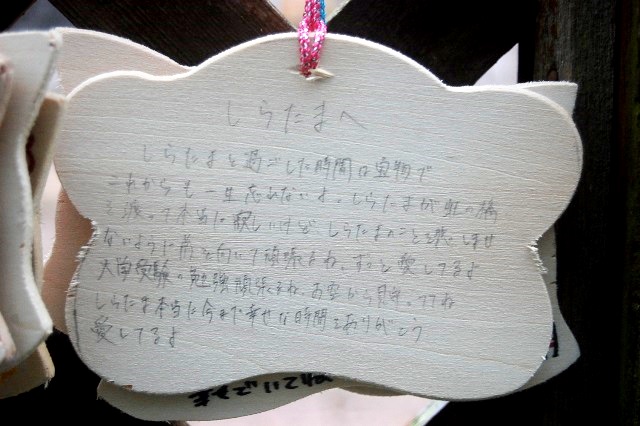 しらたまへ
しらたまと過ごした時間は宝物で
これからも一生忘れないす。しらたまが虹の橋
を渡って本当に寂しいけど しらたまのことを悲しませ
ないように前を向いて頑張るわ。ずっと愛してるよ
大学受験の勉強頑張るね。お空から見守っててね
しらたま本当に今まで幸せな時間をありがとう
愛してるよ